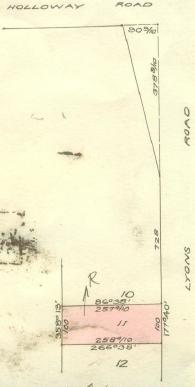 HOLLOWAY ROAD
90 9/10
378 3/10
LYONS ROAD
728
R
10
86°38'
257 9/10
358°13'
100
11
100
177°40'
258 9/10
266°38'
12